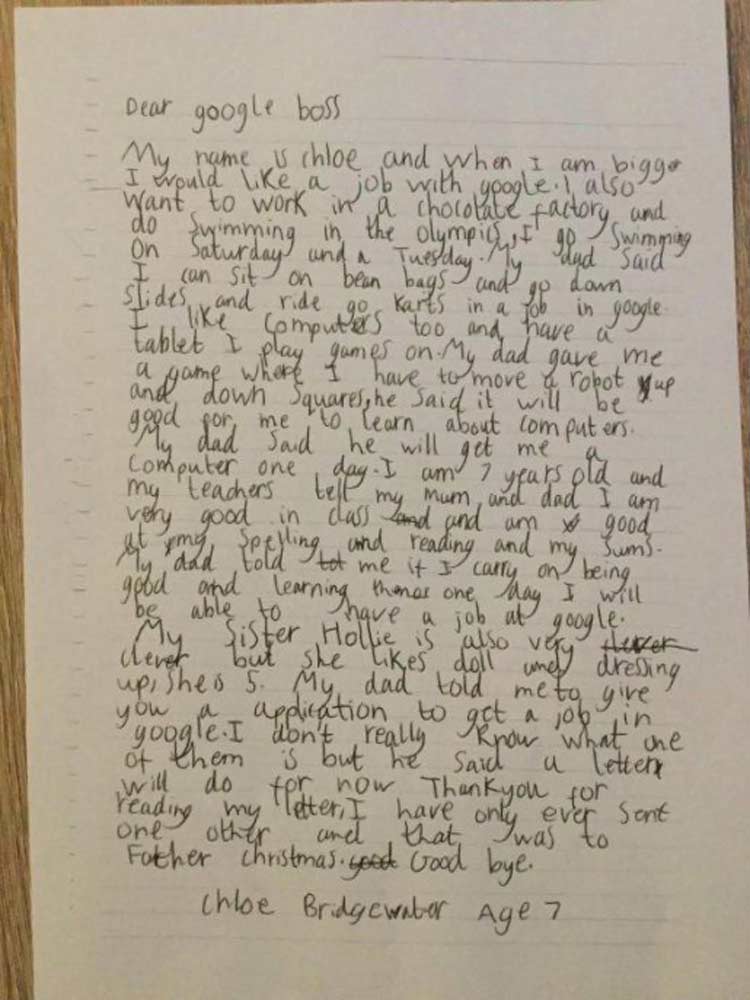 Dear google boss
My name is chloe and when I am bigger
I would like a job with google. I also
want to work in a chocolate factory and
do swimming in the olympics, I go Swimming
on Saturday and a Tuesday. My dad said
I can sit on bean bags and go down
slides and ride go karts in a job in google.
I like computers too and have a
tablet I play games on. My dad gave me
a game where I have to move a robot up
and down squares, he said it will be
good for me to learn about computers.
My dad said he will get me a
computer one day. I am 7 years old and
my teachers tell my mum and dad I am
very good in class and and am good
at my spelling and reading and my sums.
My dad told me if I carry on being
good and learning then one day I will
be able to have a job at google.
My Sister Hollie is also very clever
clever but she likes doll and dressing
up, she is 5. My dad told me to give
you a application to get a job in
google. I don't really know what one
of them is but he said a letter
will do for now Thankyou for
reading my letter, I have only ever sent
one other and that was to
Father christmas. good Good bye.
Chloe Bridgewater Age 7